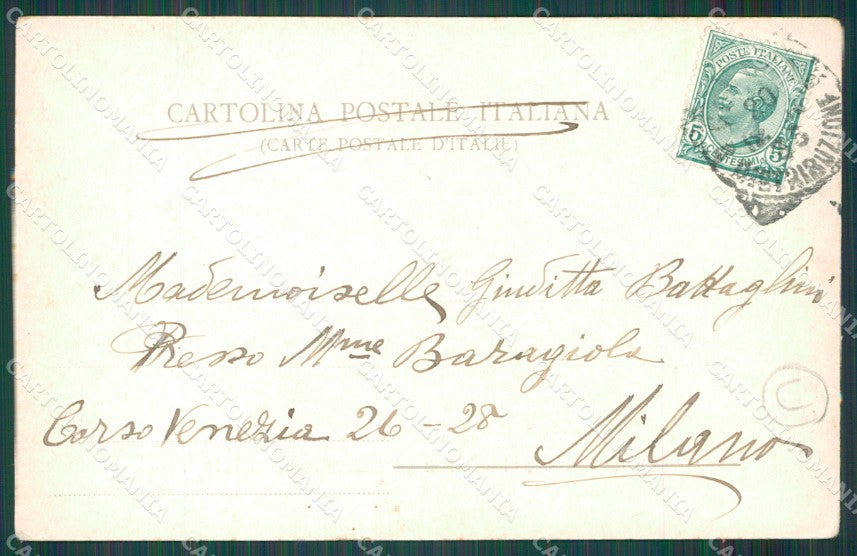 CARTOLINA POSTALE ITALIANA
(CARTE POSTALE D'ITALIE)
POSTE ITALIANE
5 CENTESIMI 5
Mademoiselle Giuditta Battaglini
Presso Mme Baragiola
Corso Venezia 26-28
Milano
CARTOLINOMANIA